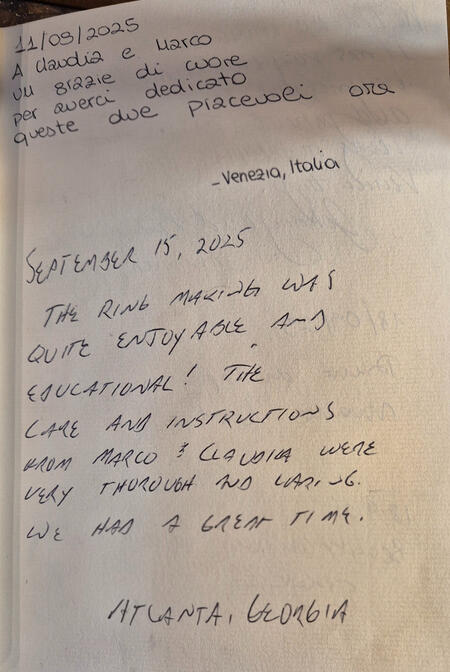 11/09/2025
A Claudia e Marco
un grazie di cuore
per averci dedicato
queste due piacevoli ore
-Venezia, Italia
SEPTEMBER 15, 2025
THE RING MAKING WAS
QUITE ENJOYABLE AND
EDUCATIONAL! THE
CARE AND INSTRUCTIONS
FROM MARCO & CLAUDIA WERE
VERY THOROUGH AND CARING.
WE HAD A GREAT TIME.
ATLANTA, GEORGIA